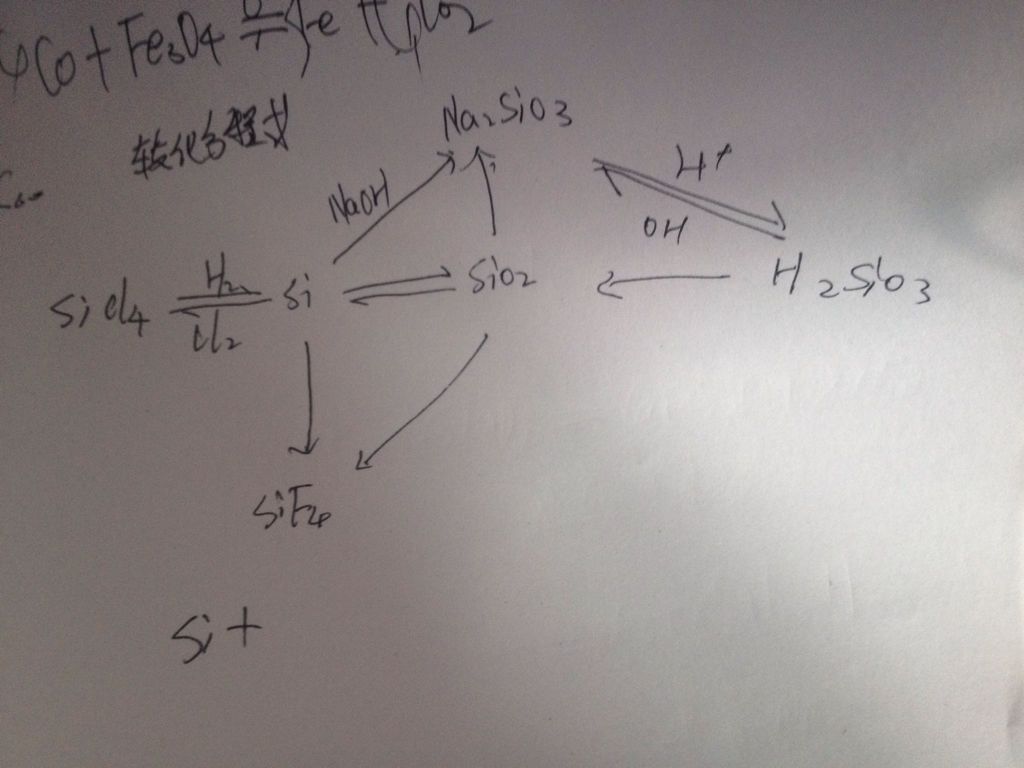 4CO + Fe3O4 = Fe + 4CO2
转化方程式
Na2SiO3
NaOH
H+
OH
SiCl4
H2
Cl2
Si
SiO2
H2SiO3
SiF4
Si +